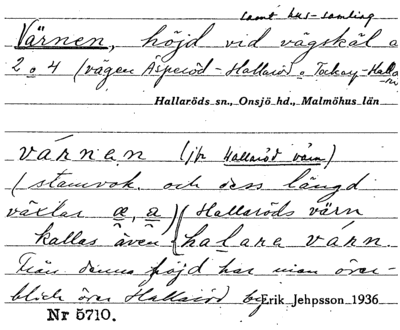 samt hus-samling
Värnen, höjd vid vägskäl
2 o 4 (vägen Äsperöd - Hallaröd o
Hallaröds sn., Onsjö hd., Malmöhus län
várnan (jfr Hallaröd värn)
(stamvok. och dess längd
växlar æ, a) (Hallaröds värn
kallas även halara várn.
Från denna höjd har man över-
blick över Hallaröd by
Erik Jehpsson 1936
Nr 5710.